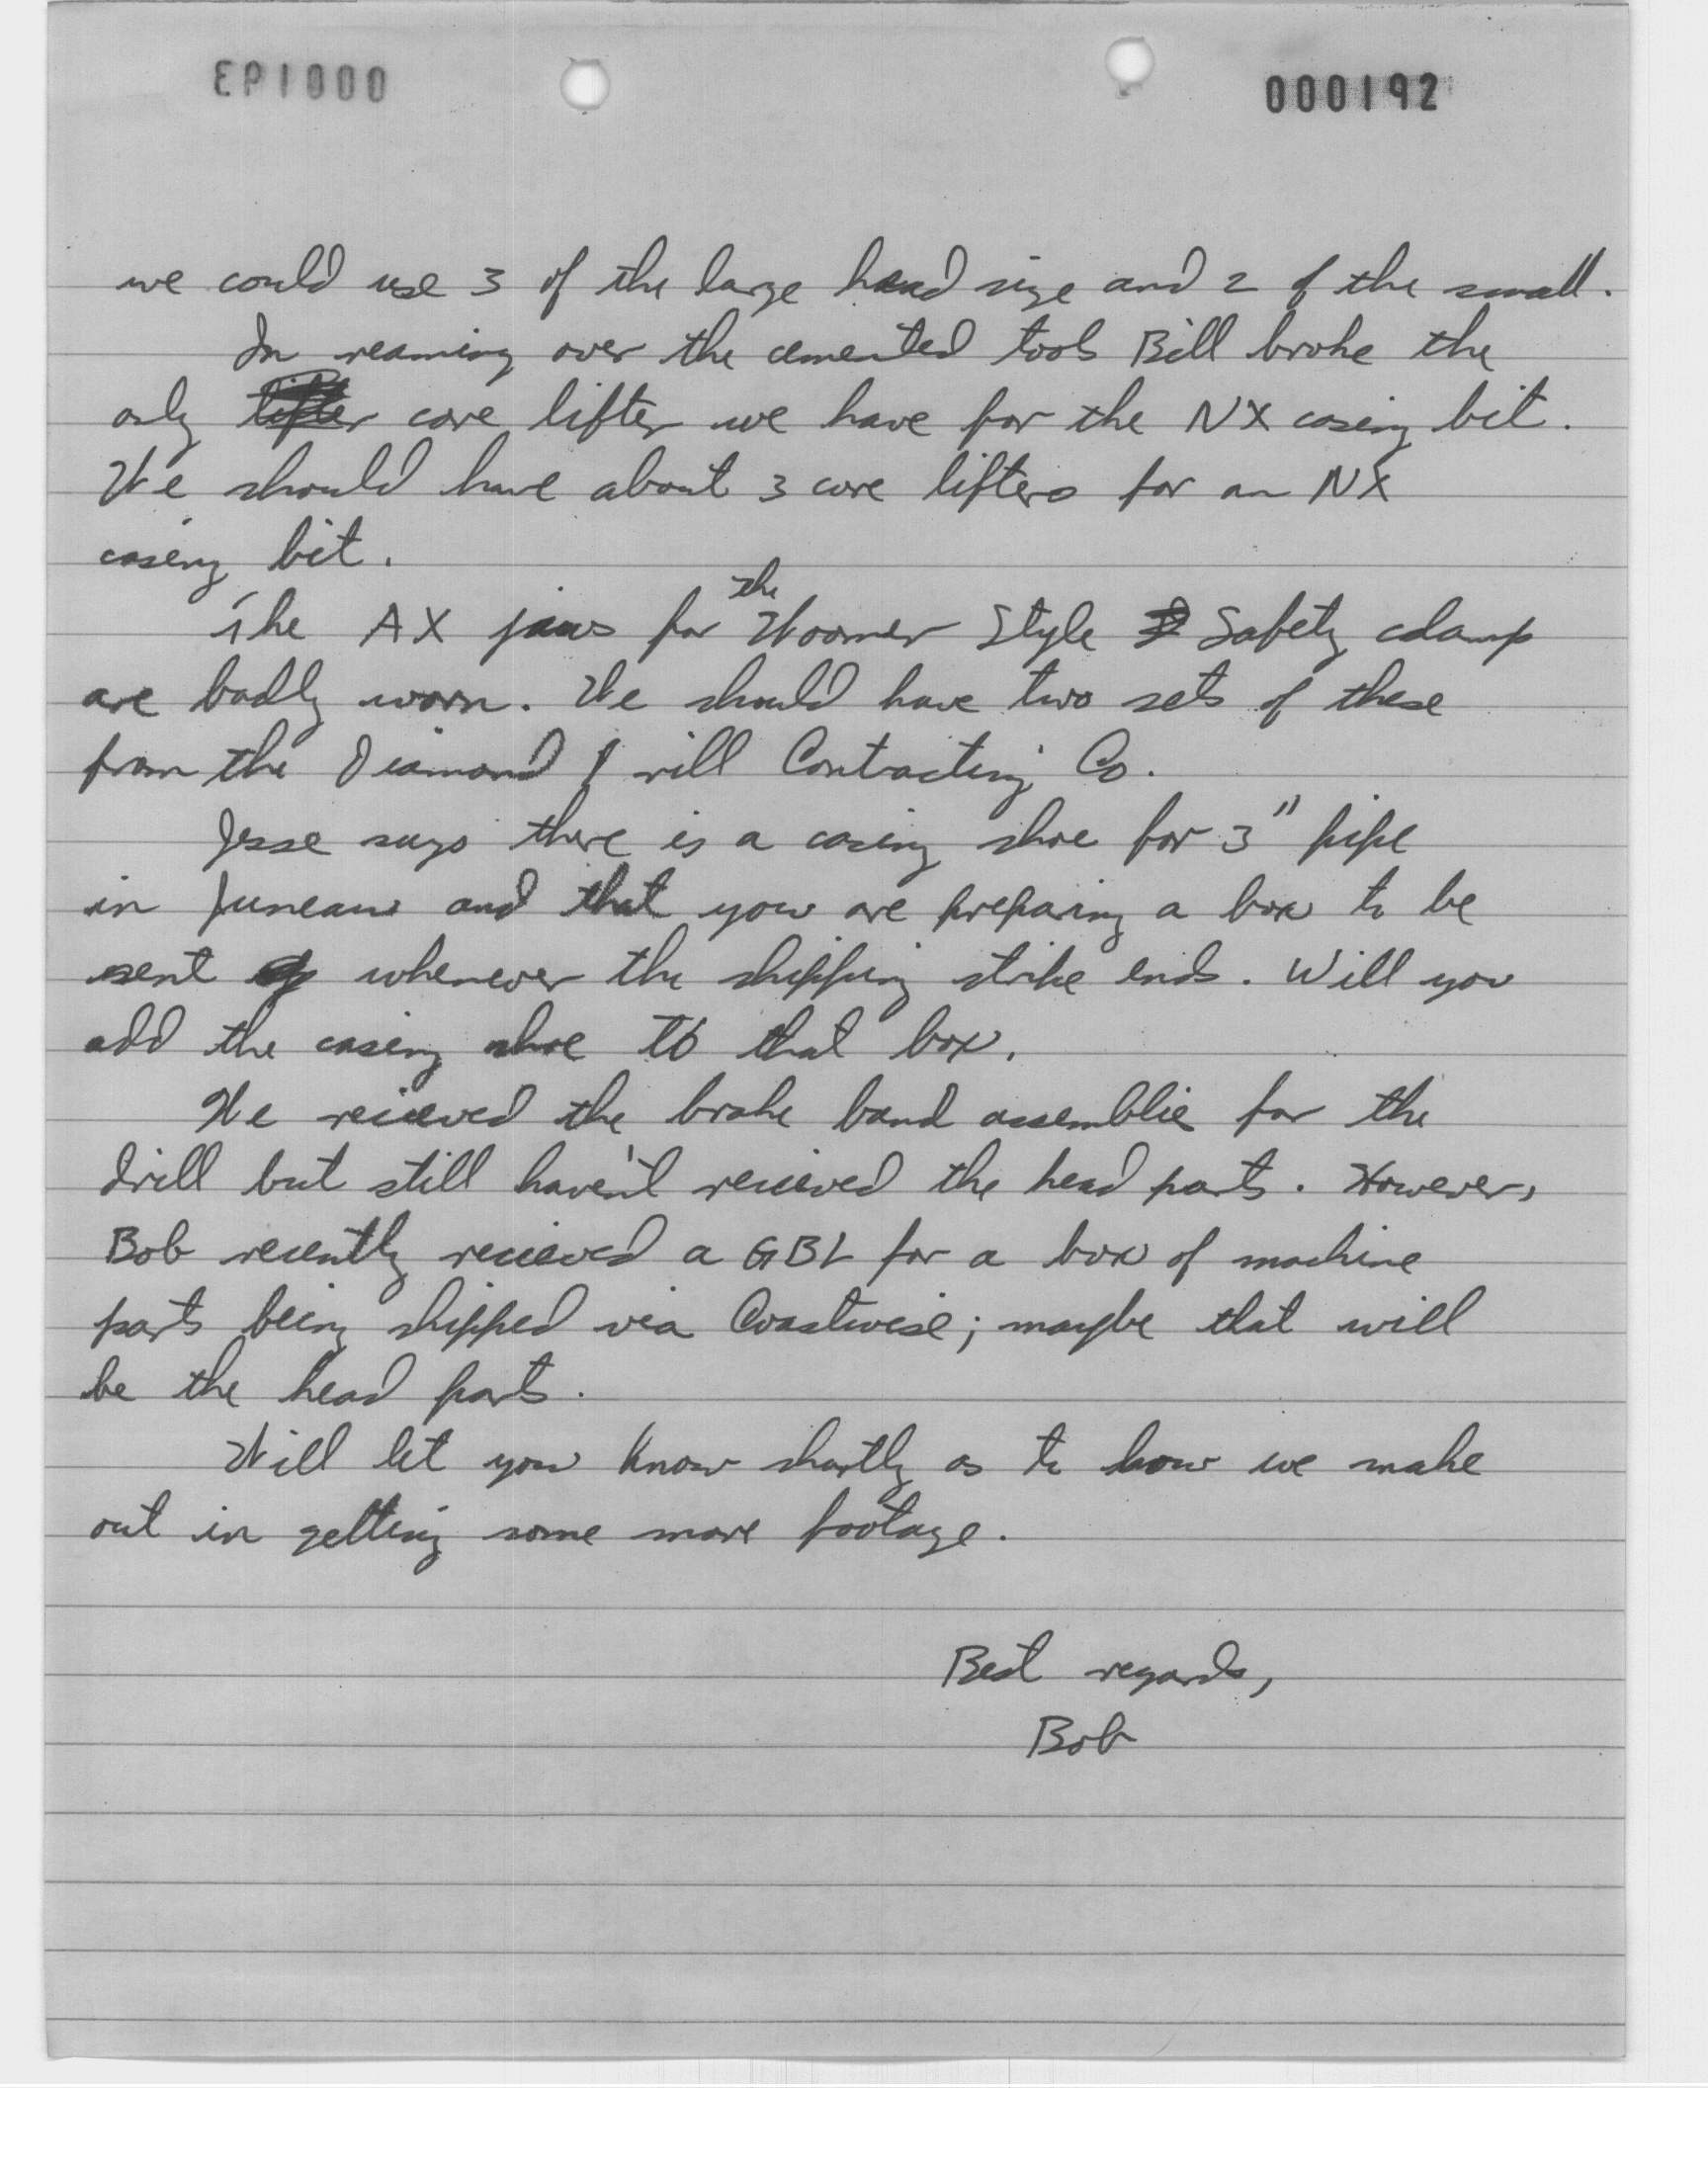 000192
we could use 3 of the large hand size and 2 of the small.
In reaming over the cemented tools Bill broke the
only core lifter we have for the NX casing bit.
We should have about 3 core lifters for an NX
casing bit.
The AX jaws for the Style Safety clamp
are badly worn. We should have two sets of these
from the Diamond Drill Contracting Co.
Jesse says there is a casing shoe for 3" pipe
in Juneau and that you are preparing a box to be
sent whenever the shipping strike ends. Will you
add the casing shoe to that box.
We recieved the brake band assemblie for the
drill but still haven't recieved the head parts. However,
Bob recently recieved a GBL for a box of machine
parts being shipped via Coastwise; maybe that will
be the head parts.
Will let you know shortly as to how we make
out in getting some more footage.
Best regards,
Bob